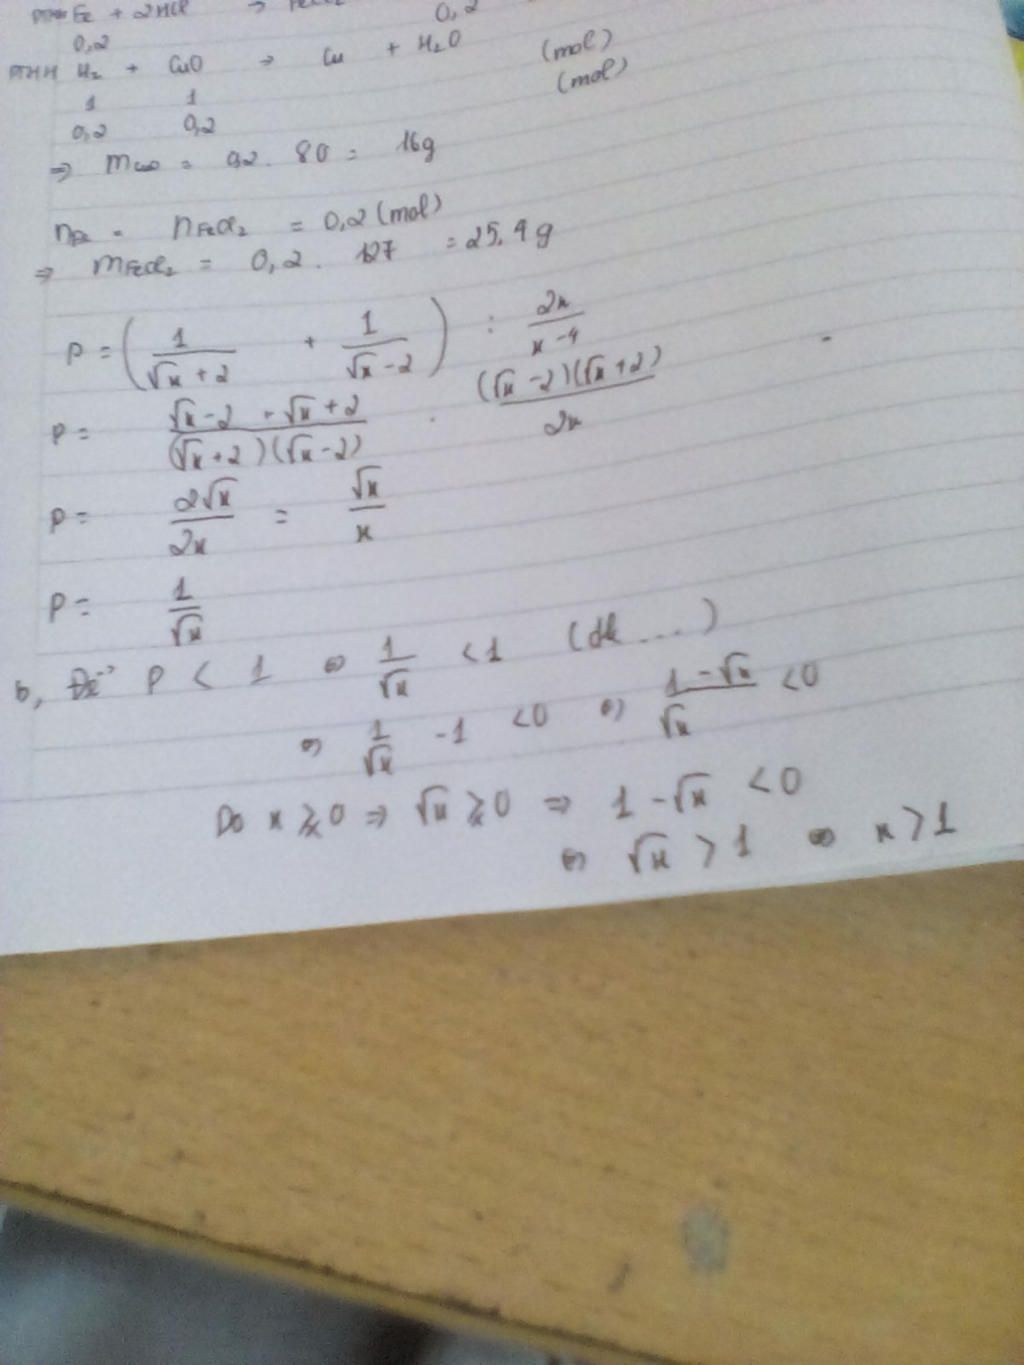 PTHH Fe + 2HCl → FeCl₂
0,2 0,2
PTHH H₂ + CuO → Cu + H₂O
1 1 (mol)
0,2 0,2 (mol)
⇒ mCuO = 0,2 . 80 = 16g
nFe = nFeCl₂ = 0,2 (mol)
⇒ mFeCl₂ = 0,2 . 127 = 25,4g
P = (1/(√x + 2) + 1/(√x - 2)) : 2x/(x - 4)
P = (√x - 2 + √x + 2)/((√x + 2)(√x - 2)) . ((√x - 2)(√x + 2))/2x
P = 2√x/2x = √x/x
P = 1/√x
b, Để P < 1 ⇔ 1/√x < 1 (đk ...)
⇔ 1/√x - 1 < 0 ⇔ (1 - √x)/√x < 0
Do x ≥ 0 ⇒ √x ≥ 0 ⇒ 1 - √x < 0
⇔ √x > 1 ⇔ x > 1